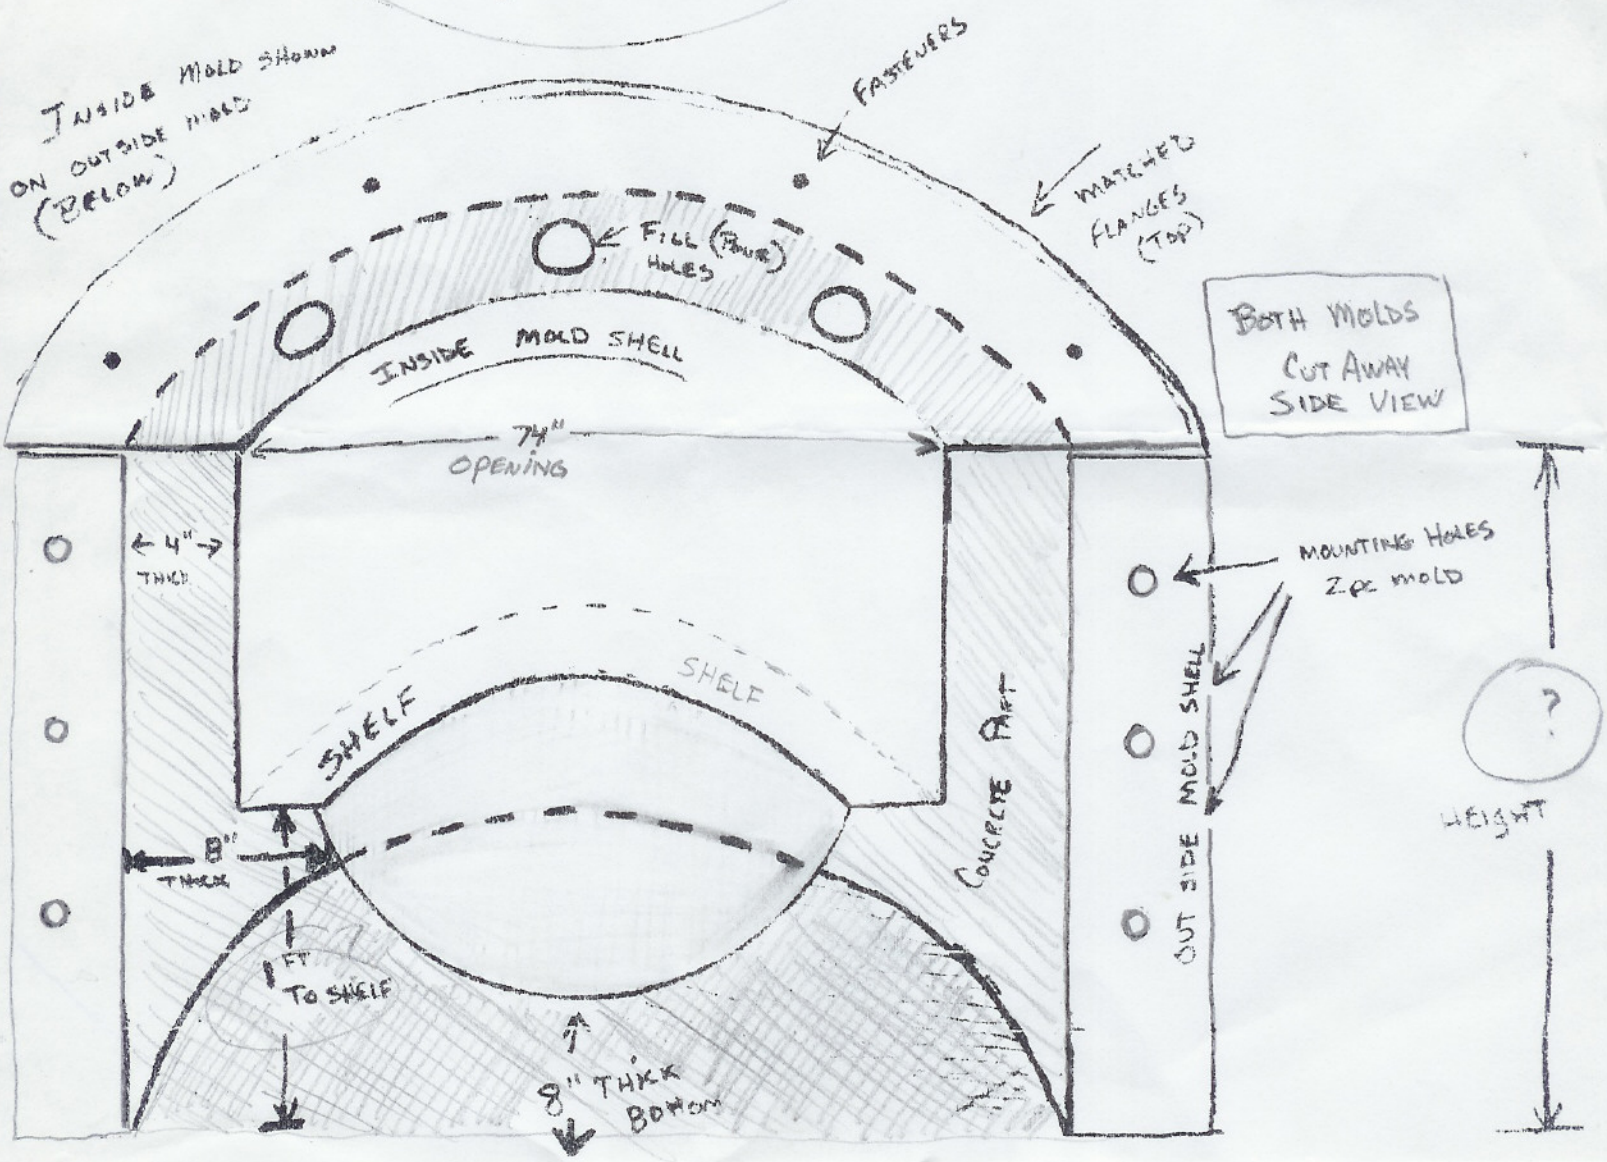 INSIDE MOLD SHOWN
ON OUTSIDE MOLD
(BELOW)
FASTENERS
MATCHED
FLANGES
(TOP)
FILL (POUR)
HOLES
INSIDE MOLD SHELL
BOTH MOLDS
CUT AWAY
SIDE VIEW
74"
OPENING
← 4" →
THICK
MOUNTING HOLES
2 pc MOLD
SHELF
SHELF
CONCRETE PART
OUT SIDE MOLD SHELL
?
HEIGHT
8"
THICK
1 FT.
TO SHELF
8" THICK
BOTTOM